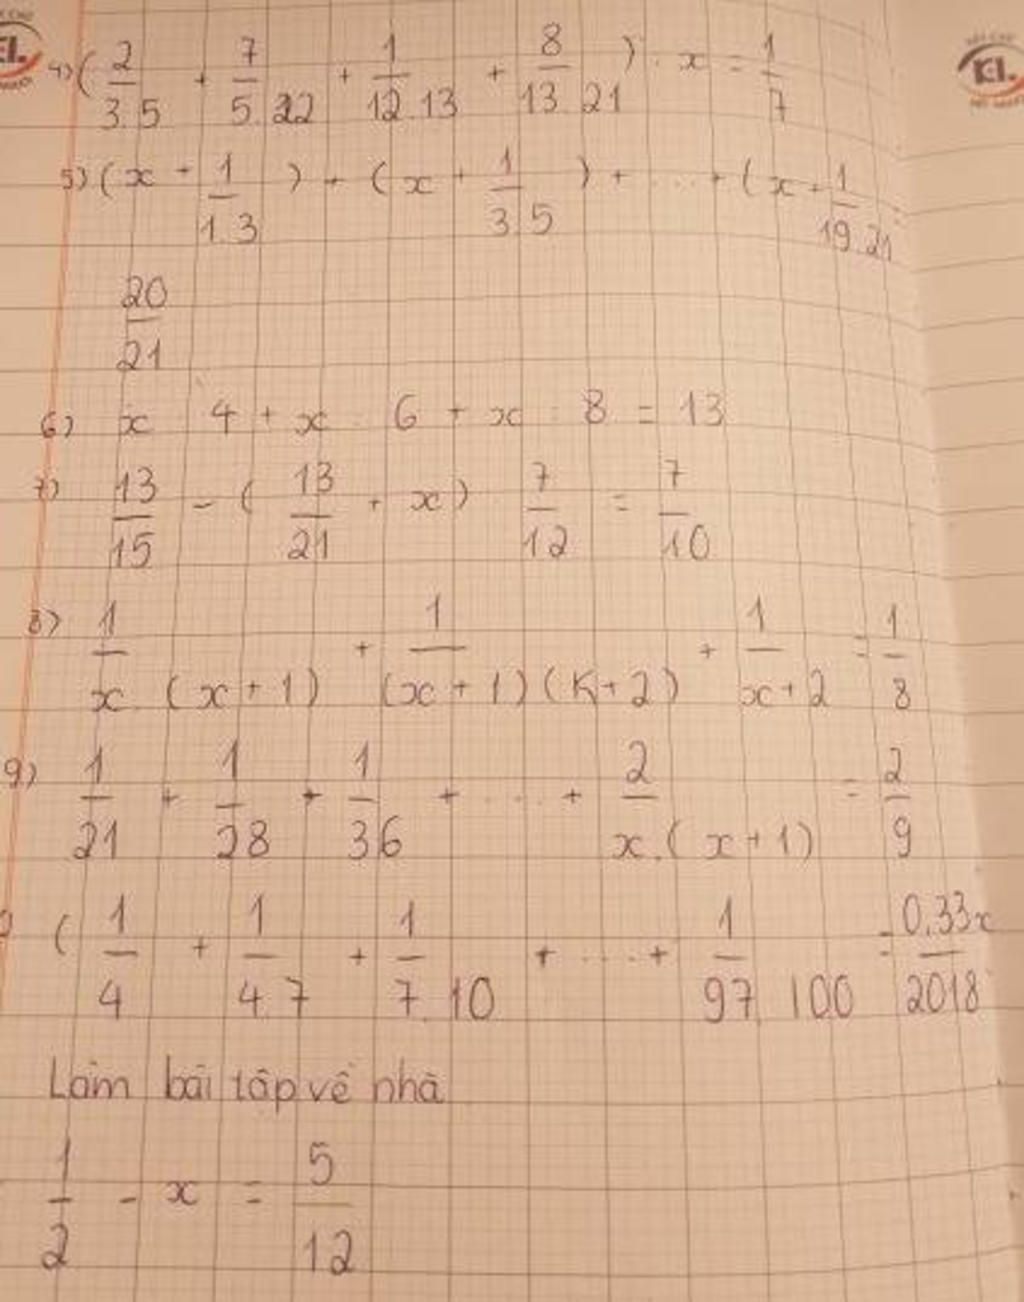 4) ( 2/3.5 + 7/5.22 + 1/12.13 + 8/13.21 ) . x = 1/7
5) ( x + 1/1.3 ) + ( x + 1/3.5 ) + ... + ( x + 1/19.21 =
20/21
6) x : 4 + x : 6 + x : 8 = 13
7) 13/15 - ( 13/21 + x ) . 7/12 = 7/10
8) 1/x.(x+1) + 1/(x+1)(x+2) + 1/x+2 = 1/8
9) 1/21 + 1/28 + 1/36 + ... + 2/x.(x+1) = 2/9
( 1/4 + 1/4.7 + 1/7.10 + ... + 1/97.100 = 0,33x/2018
Làm bài tập về nhà
1/2 - x = 5/12